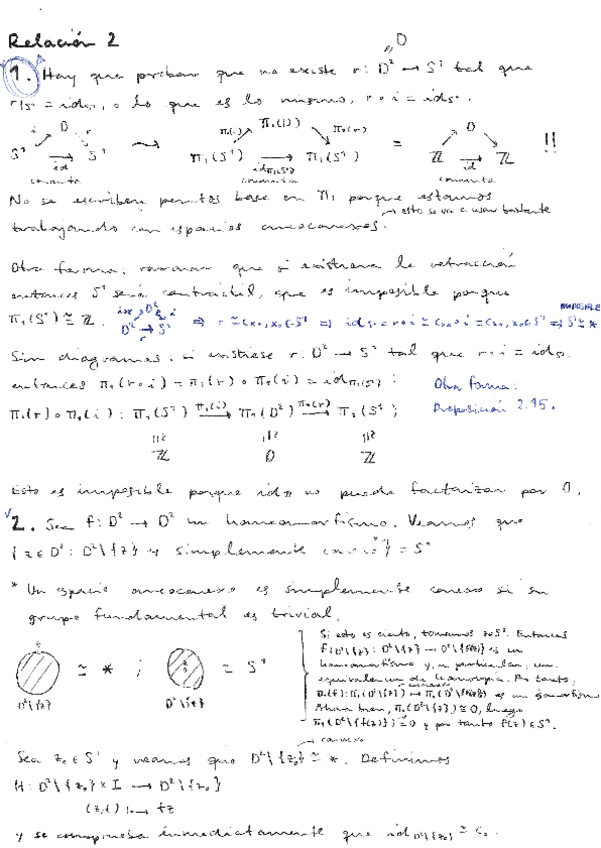 Relación 2
D
1. Hay que probar que no existe r: D² → S¹ tal que
r|S¹ = id_S¹, o lo que es lo mismo, r∘i = id_S¹.
i D r π₁(i) π₁(D) π₁(r) 0
S¹ → S¹ ⇝ π₁(S¹) → π₁(S¹) = ℤ → ℤ !!
id id_π₁(S¹) id
conmuta conmuta conmuta
No se escriben puntos base en π₁ porque estamos
→ esto se va a usar bastante
trabajando con espacios arcoconexos.
Otra forma: razonar que si existiera la retracción
entonces S¹ será contráctil, que es imposible porque
π₁(S¹) ≅ ℤ. ⇒ r ≃ c_x₀, x₀∈S¹ ⇒ id_S¹ = r∘i ≃ c_x₀∘i = c_x₀, x₀∈S¹ ⇒ S¹ ≃ *
Sin diagramas: si existiese r: D² → S¹ tal que r∘i = id_S¹
entonces π₁(r∘i) = π₁(r)∘π₁(i) = id_π₁(S¹) :
Otra forma:
π₁(r)∘π₁(i): π₁(S¹) →π₁(i) π₁(D²) →π₁(r) π₁(S¹) ;
Proposición 2.15.
ℤ 0 ℤ
Esto es imposible porque id_ℤ no puede factorizar por 0.
2. Sea f: D² → D² un homeomorfismo. Veamos que
{z∈D²: D²\{z} es simplemente conexo*} = S¹
* Un espacio arcoconexo es simplemente conexo si su
grupo fundamental es trivial.
Si esto es cierto, tomamos z∈S¹. Entonces
f: D²\{z} → D²\{f(z)} es un
homeomorfismo y, en particular, una
equivalencia de homotopía. Por tanto,
π₁(f): π₁(D²\{z}) → π₁(D²\{f(z)}) es un isomorfismo
Ahora bien, π₁(D²\{z}) ≅ 0, luego
π₁(D²\{f(z)}) ≅ 0 y por tanto f(z)∈S¹.
z ≃ * ; z ≃ S¹
D²\{z} D²\{z}
→ convexo
Sea z₀∈S¹ y veamos que D²\{z₀} ≃ *. Definimos
H: D²\{z₀} × I → D²\{z₀}
(z,t) ↦ tz
y se comprueba inmediatamente que id_D²\{z₀} ≃ c₀